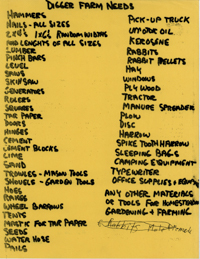 DIGGER FARM NEEDS
HAMMERS
NAILS - ALL SIZES
2X4S 1X6S RANDOM WIDTHS
AND LENGHTS OF ALL SIZES
LUMBER
PINCH BARS
LEVEL
SAWS
SKIN SAW
GENERATORS
ROLERS
SQUARES
TAR PAPER
DOORS
HINGES
CEMENT
CEMENT BLOCKS
LIME
PIPE
TROWLES - MASON TOOLS
SHOVELS - GARDEN TOOLS
HOES
RAKES
WHEEL BARROWS
TENTS
PLASTIC FOR TAR PAPER
SEEDS
WATER HOSE
PAILS
PICK-UP TRUCK
MOTOR OIL
KEROSENE
RABBITS
RABBIT PELLETS
HAY
WINDOWS
PLYWOOD
TRACTOR
MANURE SPREADER
PLOW
DISC
HARROW
SPIKE TOOTH HARROW
SLEEPING BAGS
CAMPING EQUIPMENT
TYPEWRITER
OFFICE SUPPLIES
ANY OTHER MATERIALS
OR TOOLS FOR HOMESTEADING
GARDENING + FARMING